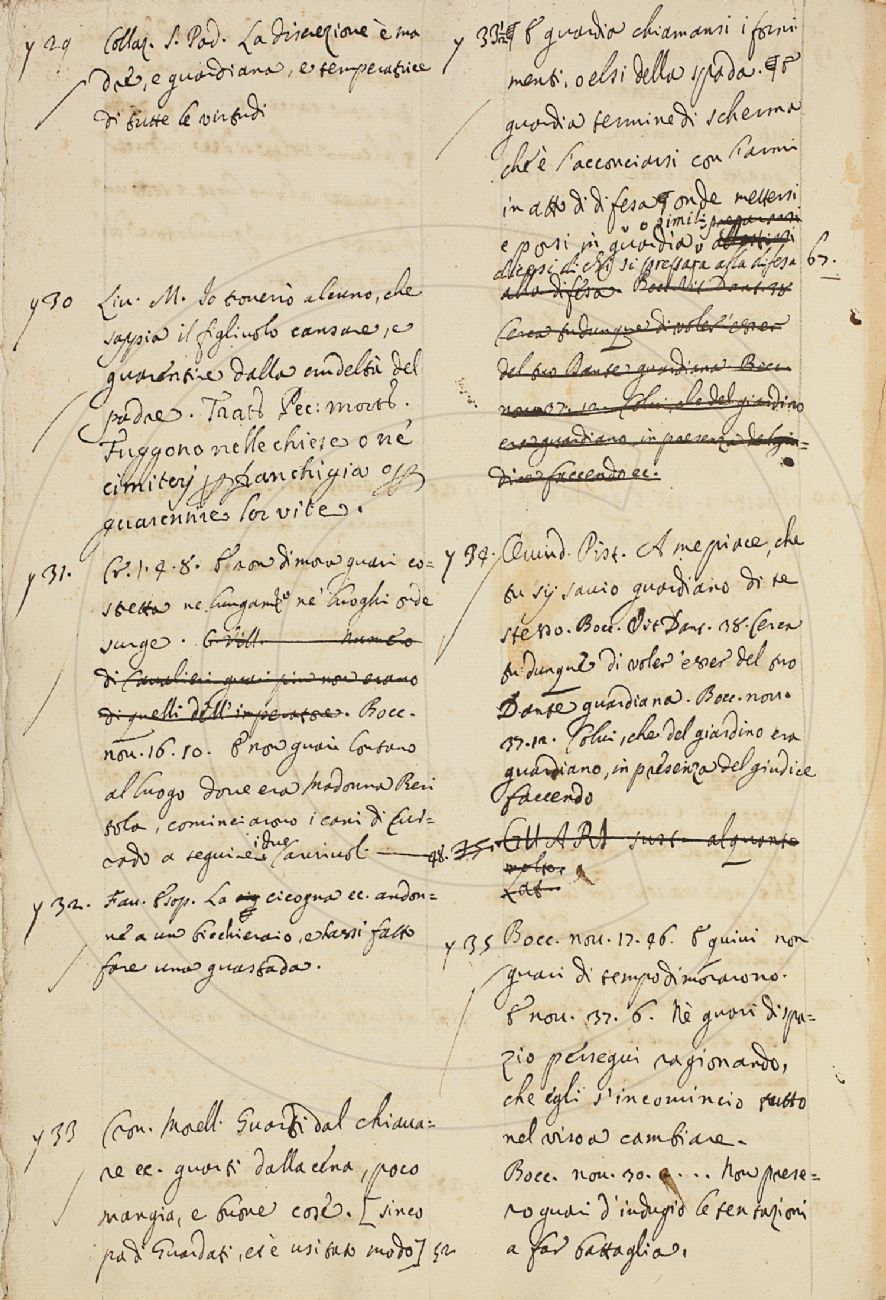 y 29 Collaz. S. Pad. La discrezione è ma
dre, e guardiana, e temperatrice
di tutte le virtudi
y 30 Liv. M. Io troverò alcuno, che
sappia il figliuolo cansare, e
guarentire dalla crudeltà del
padre. Tratt. Pec: mort.
Fuggono nelle chiese o ne'
cimiterj franchigia
guarentire lor vite.
y 31. Cr. 1. 4. 8. E non dimora guari co-
stetta ne' luoghi onde
surge. G. Vill. numero
di Cavalieri guari più non erano
di quelli dell'imperatore. Bocc.
nov. 16. 10. E non guari lontano
al luogo dove era Madonna Beri
tola, cominciarono i cani di Cur-
rado a seguire i due Cavriuoli 48.
y 32. Fav. Esop. La cicogna ec. andon-
ne a un bicchieraio, e hassi fatto
fare una guastada.
y 33 Cron. Morell. Guarti dal chiava-
re ec. guarti dalla cena, poco
mangia, e buone cose. [sinco
pa di Guardati, et è usitato modo] 52
y 33½ ¶ E guardia chiamansi i forni
menti, o elsi della spada. ¶ E
guardia termine di scherma
che è l'acconciarsi con l'armi
in atto di difesa ¶ onde mettersi
o simili prepararsi
e porsi in guardia
dicesi di chi si prepara alla difesa 67.
alla difesa. Bocc. Vit. Dant. 38
Cerca tu dunque di voler esser
del tuo Dante guardiana. Bocc.
nov. 37. 12. Colui, che del giardino
era guardiano, in presenza del giu-
dice faccendo ec.
y 34. Ovvid. Pist. A me piace, che
tu sij savio guardiano di te
stesso. Bocc. Vit. Dant. 38. Cerca
tu dunque di voler esser del tuo
Dante guardiana. Bocc. nov.
37. 12. Colui, che del giardino era
guardiano, in presenza del giudice
faccendo
GUARI sust. alquanto
molto.
Lat.
y 35 Bocc. nov. 17. 46. E quivi non
guari di tempo dimorarono.
E nov. 37. 6. Nè guari di spa-
zio persegui ragionando,
che egli s'incominciò tutto
nel viso a cambiare.
Bocc. nov. 30. ... Non prese-
ro guari d'indugio le tentazioni
a far battaglia.